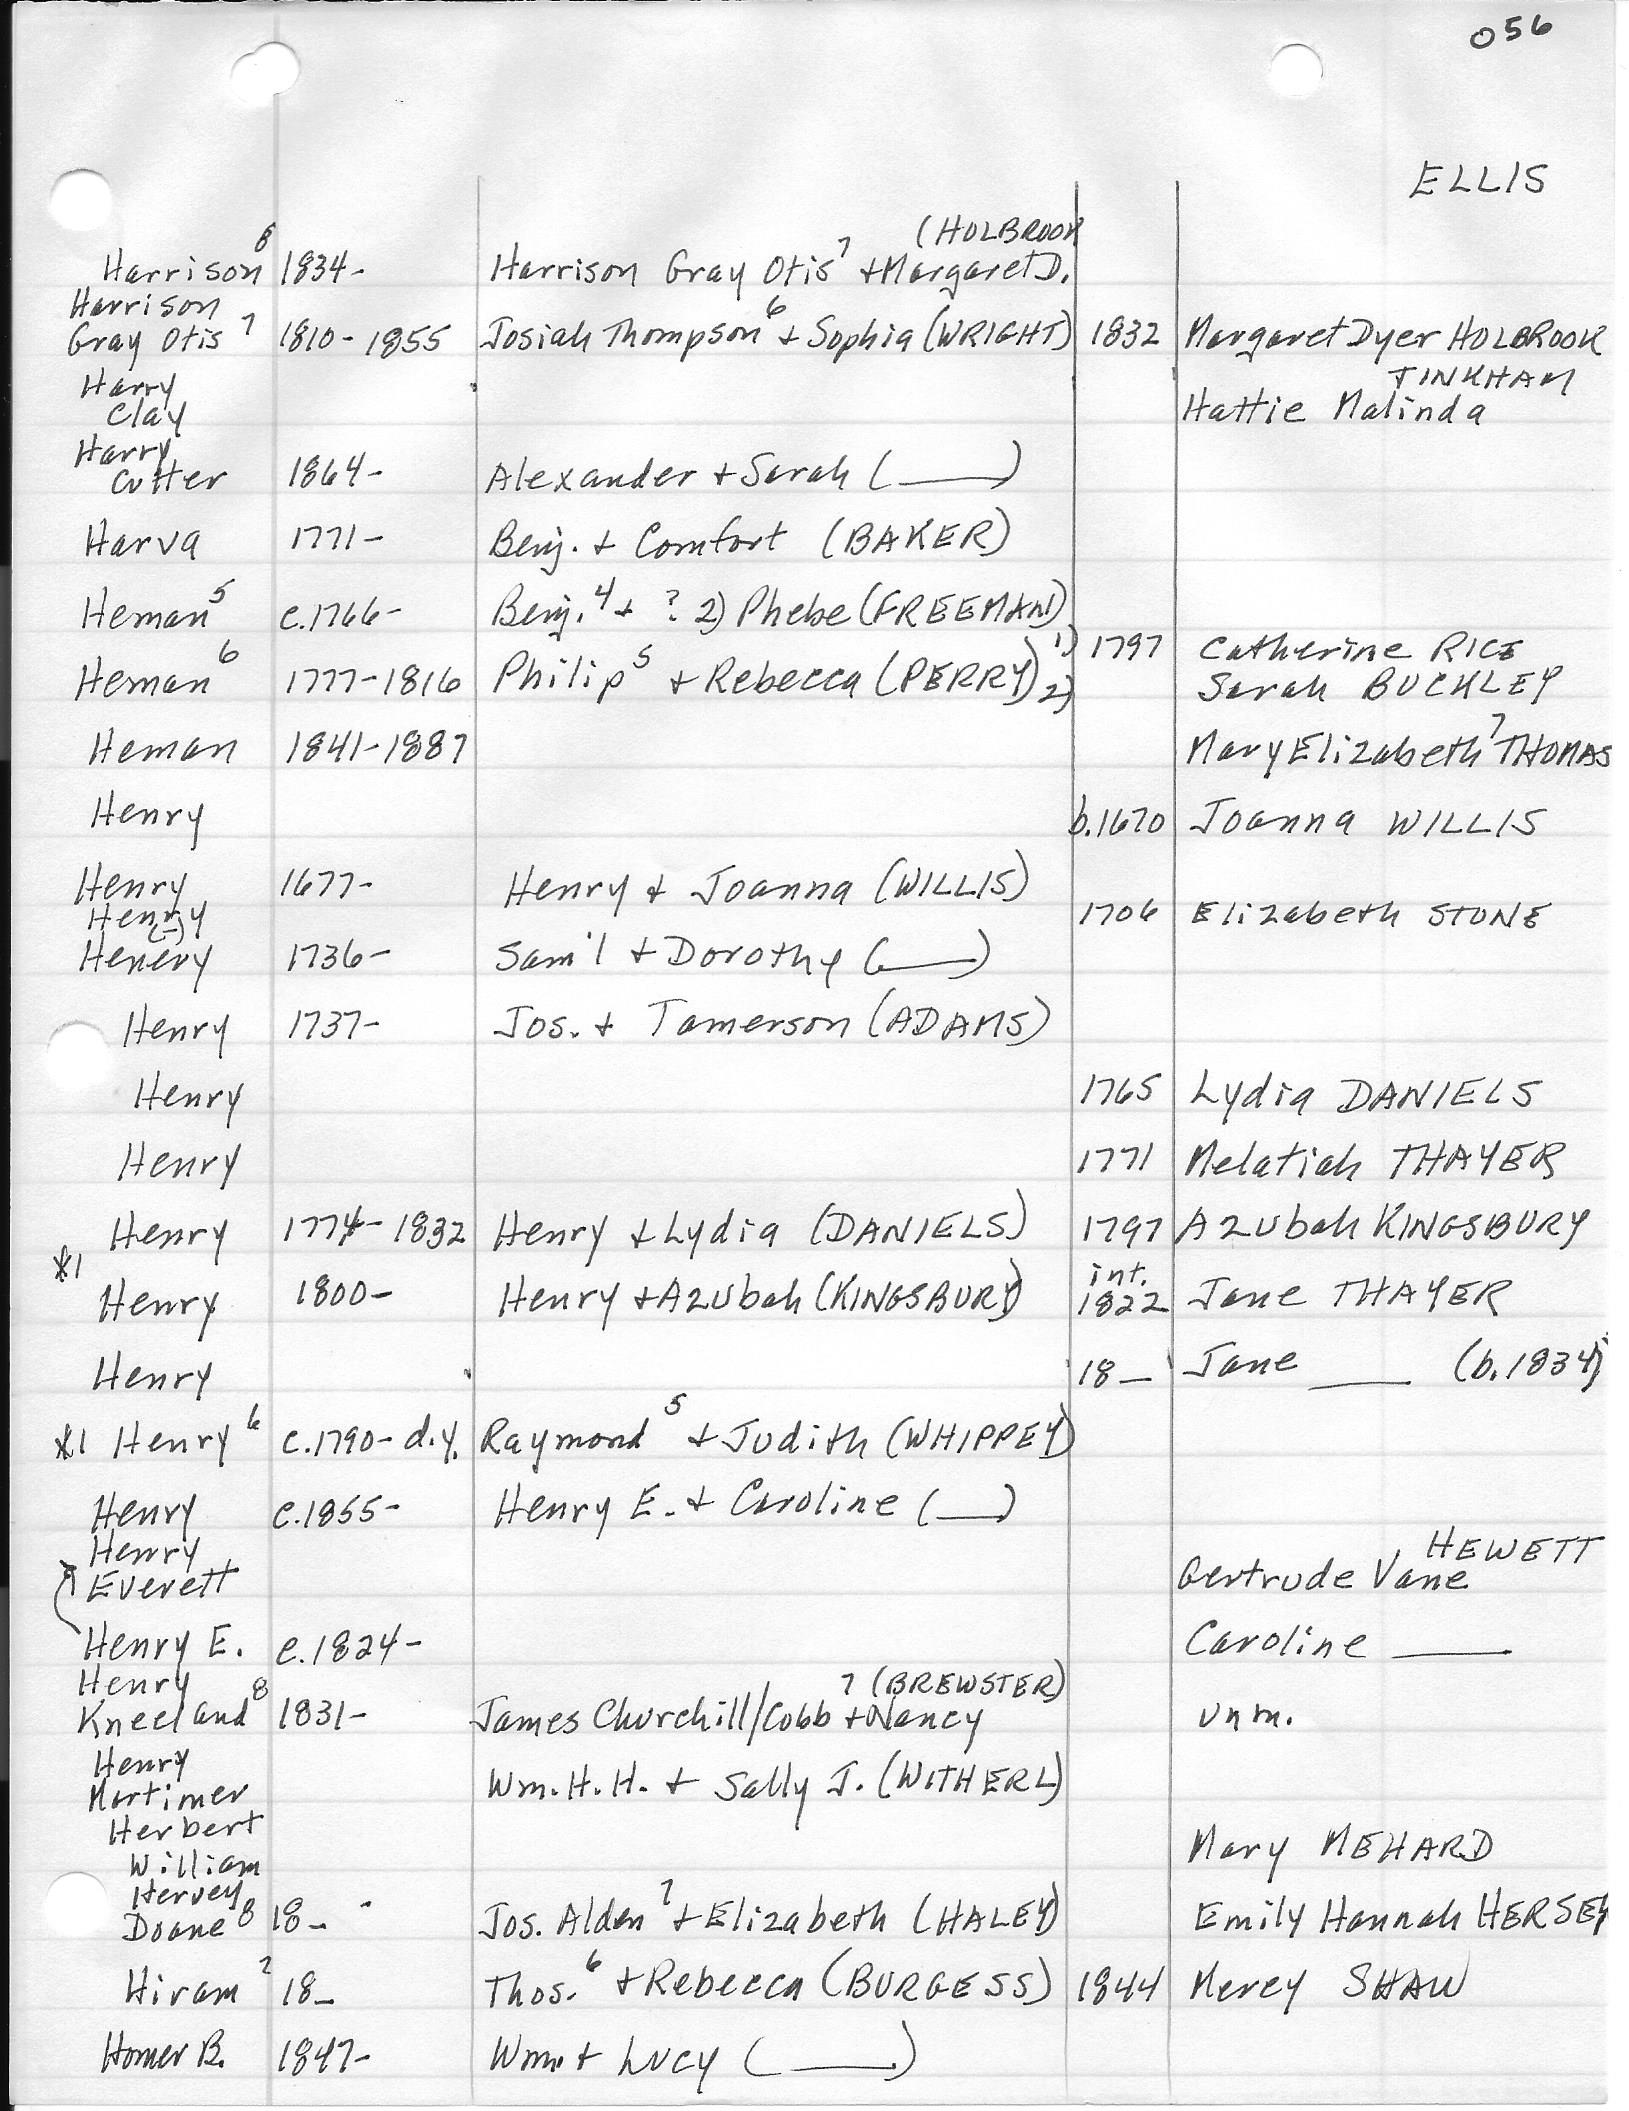 056
ELLIS
(HOLBROOK
Harrison 8 1834- Harrison Gray Otis 7 + Margaret D.
Harrison
Gray Otis 7 1810-1855 Josiah Thompson 6 + Sophia (WRIGHT) 1832 Margaret Dyer HOLBROOK
Harry TINKHAM
Clay Hattie Malinda
Harry
Cutter 1864- Alexander + Sarah (___)
Harva 1771- Benj. + Comfort (BAKER)
Heman 5 c.1766- Benj. 4 + ? 2) Phebe (FREEMAN)
1) 1797 Catherine RICE
Heman 6 1777-1816 Philip 5 + Rebecca (PERRY) 2) Sarah BUCKLEY
Heman 1841-1887 Mary Elizabeth 7 THOMAS
Henry b.1670 Joanna WILLIS
Henry 1677- Henry + Joanna (WILLIS)
Henry 1706 Elizabeth STONE
(-)
Henery 1736- Sam'l + Dorothy (___)
Henry 1737- Jos. + Tamerson (ADAMS)
Henry 1765 Lydia DANIELS
Henry 1771 Melatiah THAYER
Henry 1774-1832 Henry + Lydia (DANIELS) 1797 Azubah KINGSBURY
*1 int.
Henry 1800- Henry + Azubah (KINGSBURY) 1822 Jane THAYER
Henry 18_ Jane ___ (b.1834)
*1 Henry 6 c.1790-d.y. Raymond 5 + Judith (WHIPPEY)
Henry c.1855- Henry E. + Caroline (___)
Henry HEWETT
Everett Gertrude Vane
Henry E. c.1824- Caroline ___
Henry 7 (BREWSTER)
Kneeland 8 1831- James Churchill/Cobb + Nancy unm.
Henry
Mortimer Wm. H. H. + Sally J. (WITHERL)
Herbert
William Mary MEHARD
Hervey
Doane 8 18_- Jos. Alden 7 + Elizabeth (HALEY) Emily Hannah HERSEY
Hiram 7 18_ Thos. 6 + Rebecca (BURGESS) 1844 Mercy SHAW
Homer B. 1847- Wm. + Lucy (___)